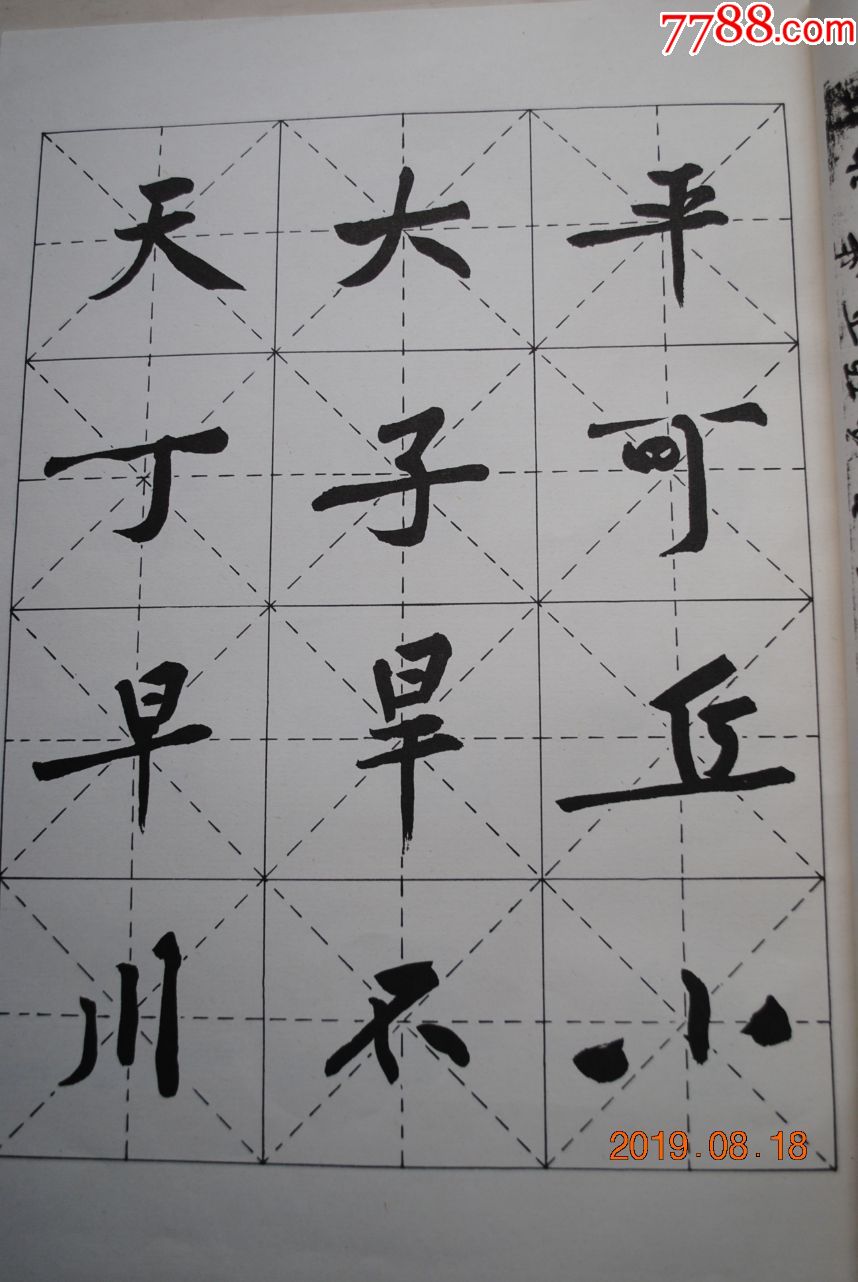 7788.com
平可丘小
大子旱不
天丁早川
2019.08.18